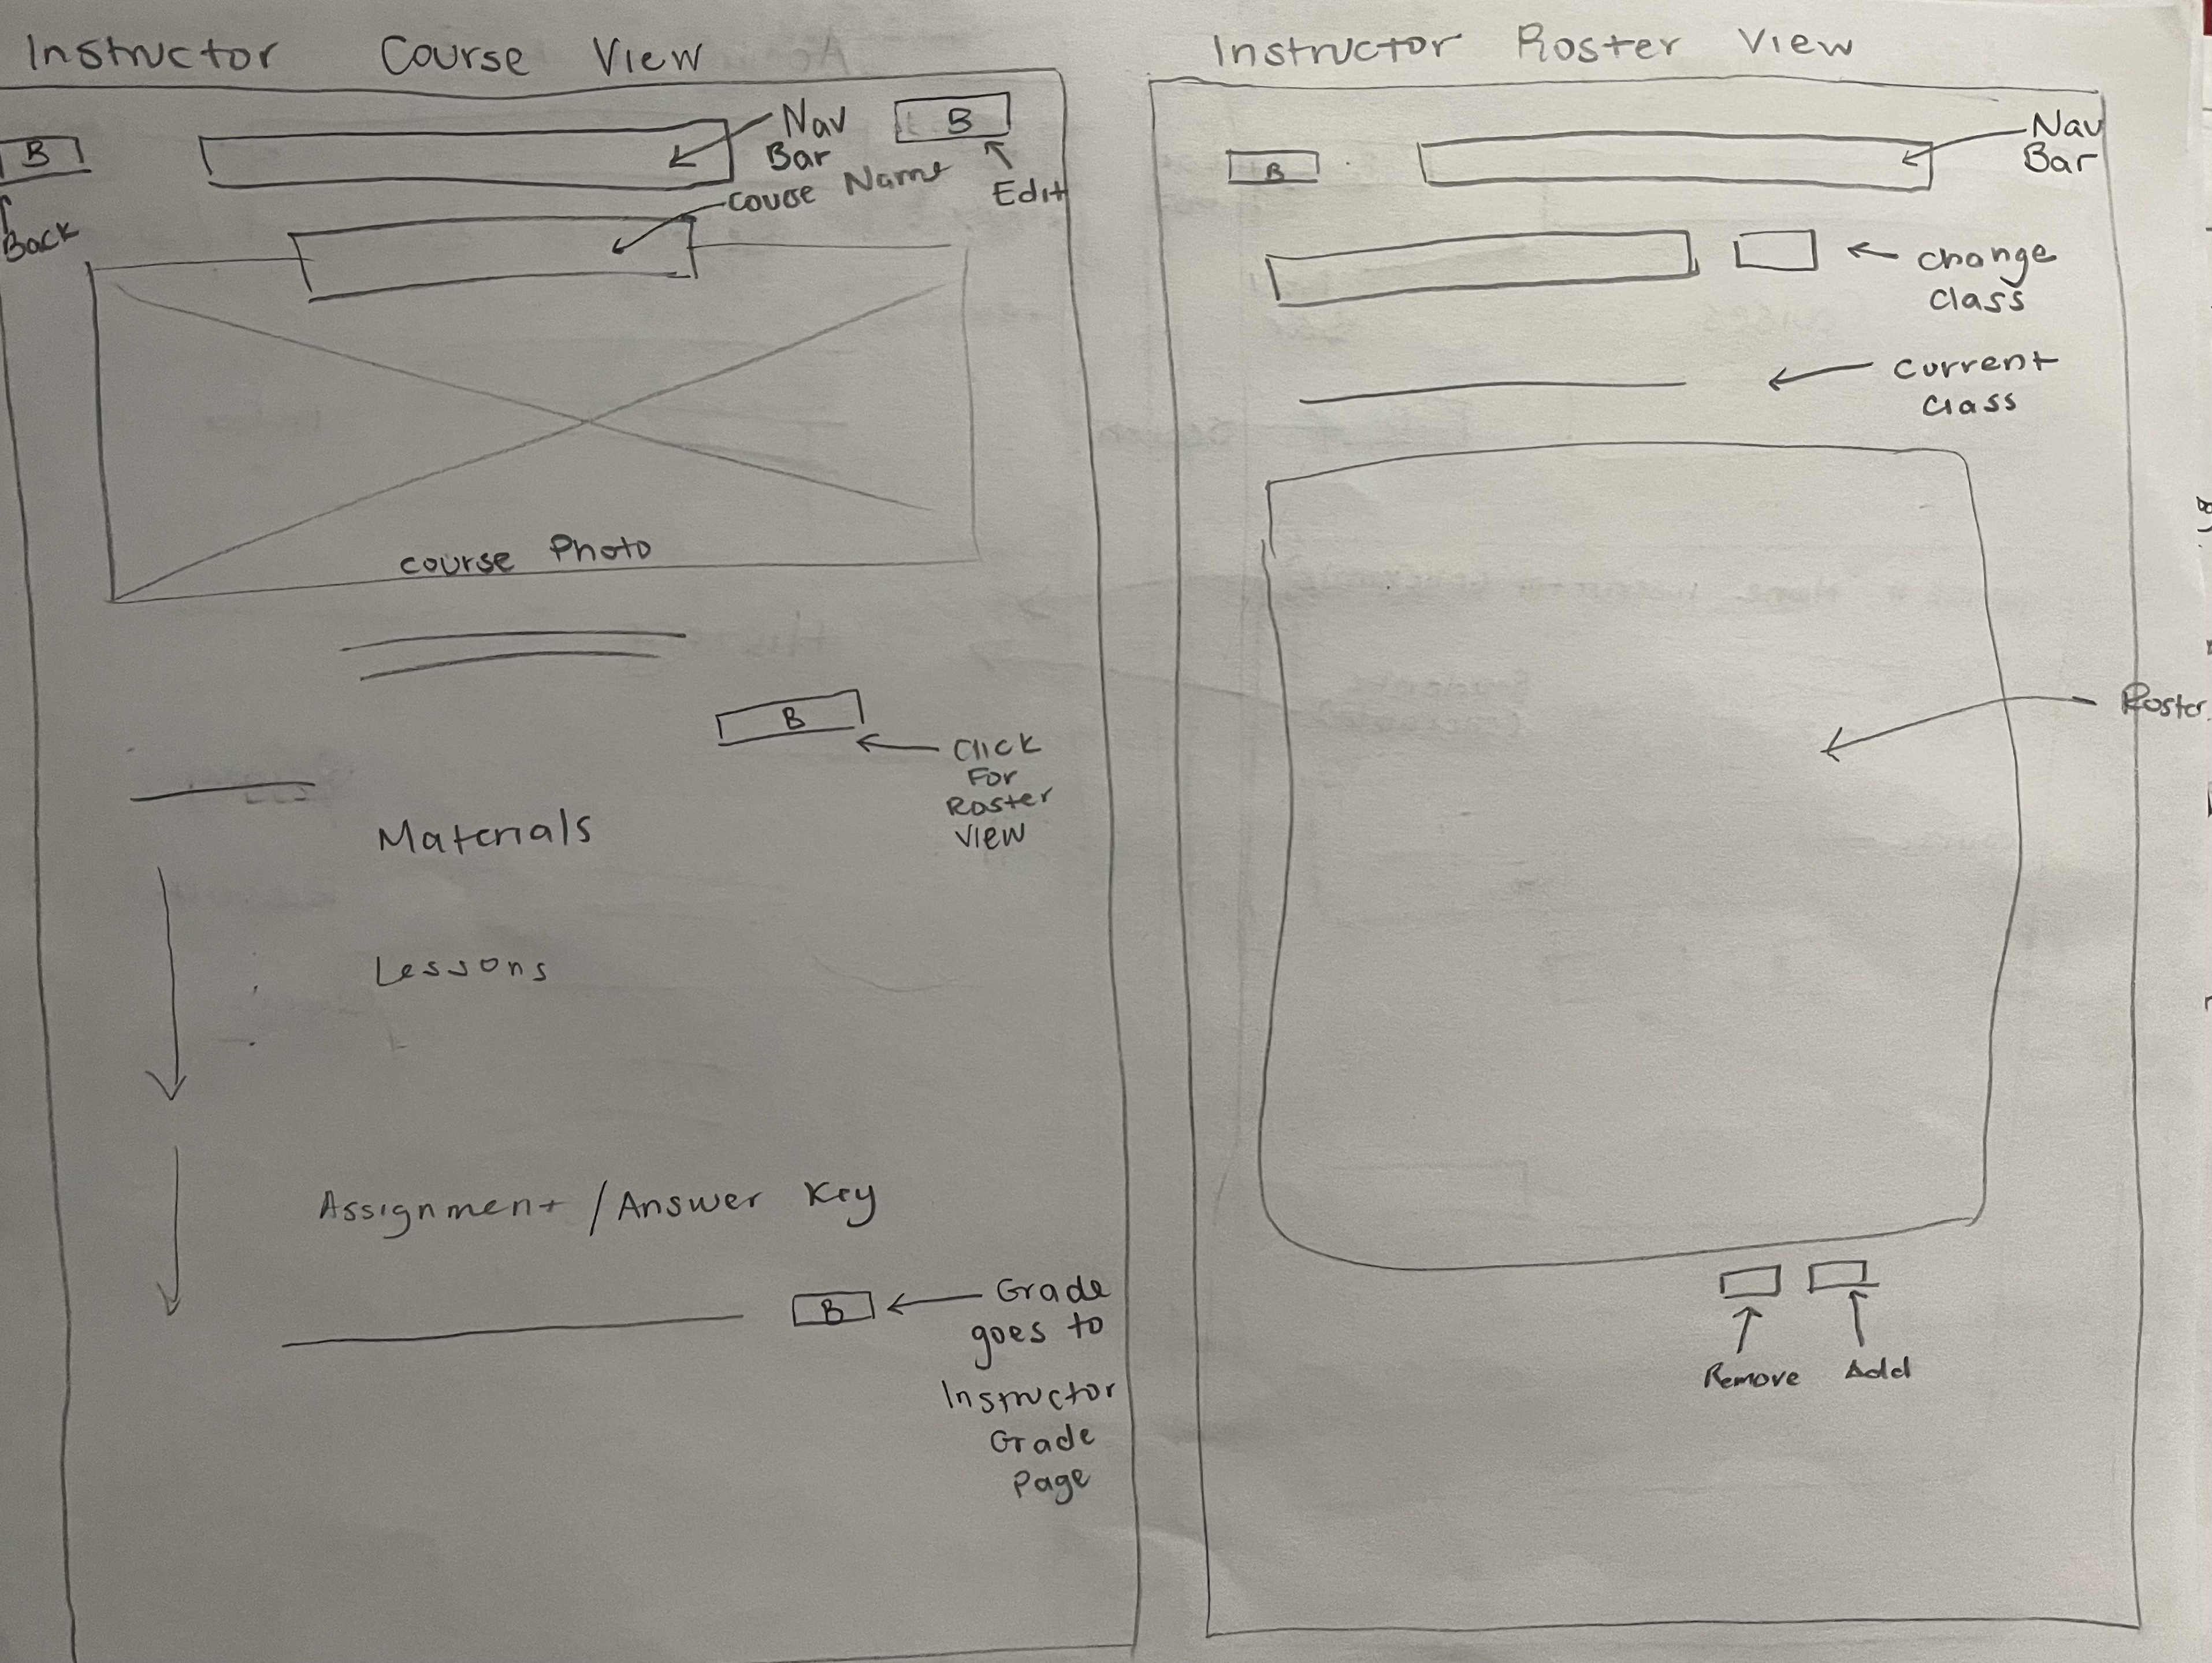 Instructor Course View
B
Back
Nav
Bar
B
Edit
Couse Name
Course Photo
B
Click
For
Roster
View
Materials
Lessons
Assignment / Answer Key
B
Grade
goes to
Instructor
Grade
Page
Instructor Roster View
B
Nav
Bar
change
class
Current
class
Roster
Remove
Add